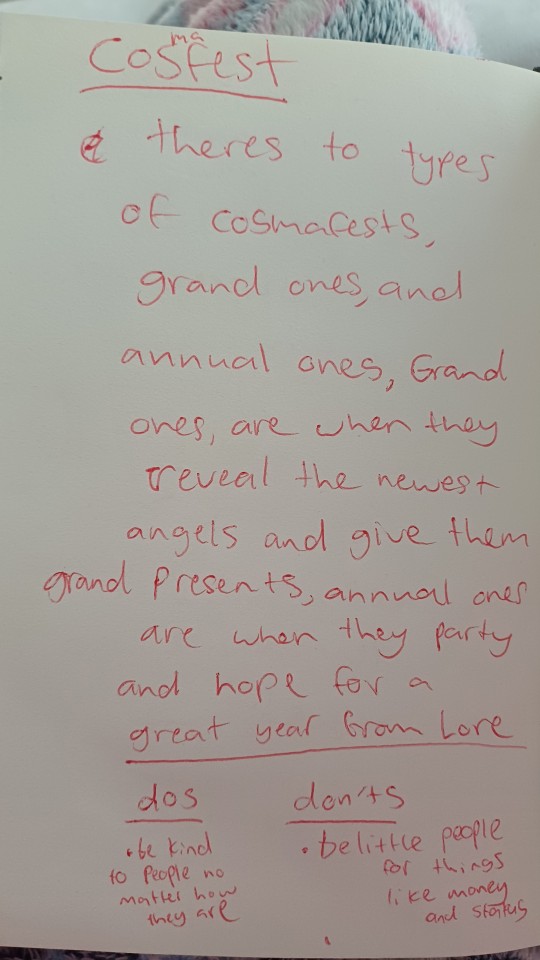 Cosmafest
theres to types
of cosmafests,
grand ones, and
annual ones, Grand
ones, are when they
reveal the newest
angels and give them
grand presents, annual ones
are when they party
and hope for a
great year from Lore
dos
don'ts
• be kind
to people no
matter how
they are
• belittle people
for things
like money
and status